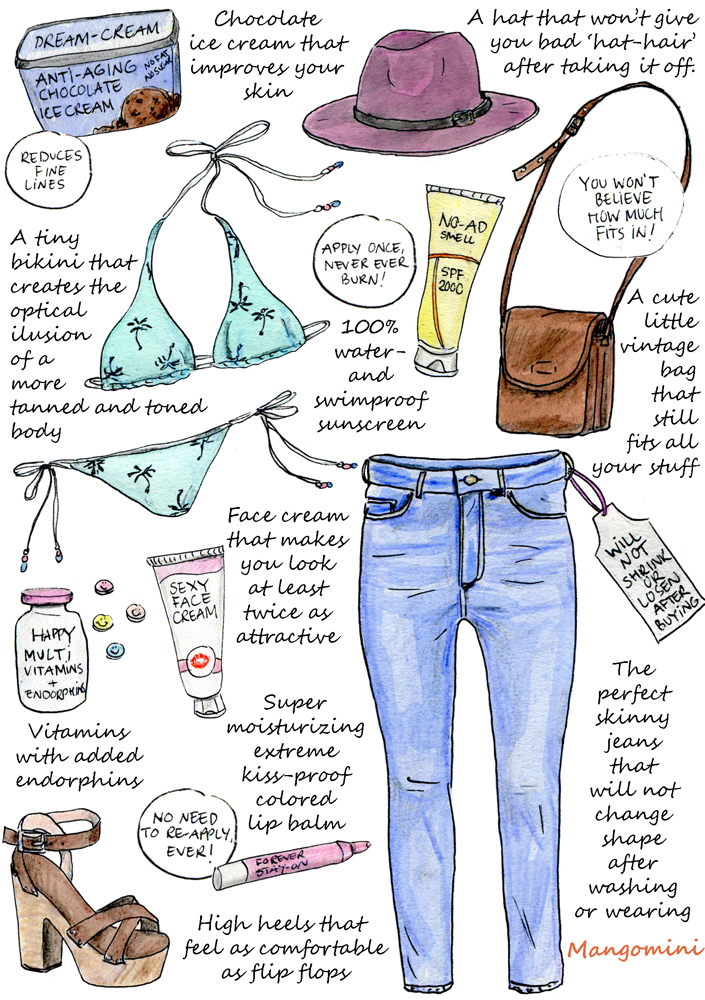 DREAM-CREAM
ANTI-AGING
CHOCOLATE
ICE CREAM
NO FAT
NO SUGAR
REDUCES
FINE
LINES
Chocolate
ice cream that
improves your
skin
A hat that won't give
you bad 'hat-hair'
after taking it off.
YOU WON'T
BELIEVE
HOW MUCH
FITS IN!
A tiny
bikini that
creates the
optical
ilusion
of a
more
tanned and toned
body
APPLY ONCE,
NEVER EVER
BURN!
NO-AD
SMELL
SPF
2000
100%
water-
and
swimproof
sunscreen
A cute
little
vintage
bag
that
still
fits all
your stuff
Face cream
that makes
you look
at least
twice as
attractive
SEXY
FACE
CREAM
HAPPY
MULTI
VITAMINS
+
ENDORPHINS
Vitamins
with added
endorphins
WILL
NOT
SHRINK
OR
LOSEN
AFTER
BUYING
The
perfect
skinny
jeans
that
will not
change
shape
after
washing
or wearing
Super
moisturizing
extreme
kiss-proof
colored
lip balm
NO NEED
TO RE-APPLY,
EVER!
FOREVER
STAY-ON
High heels that
feel as comfortable
as flip flops
Mangomini